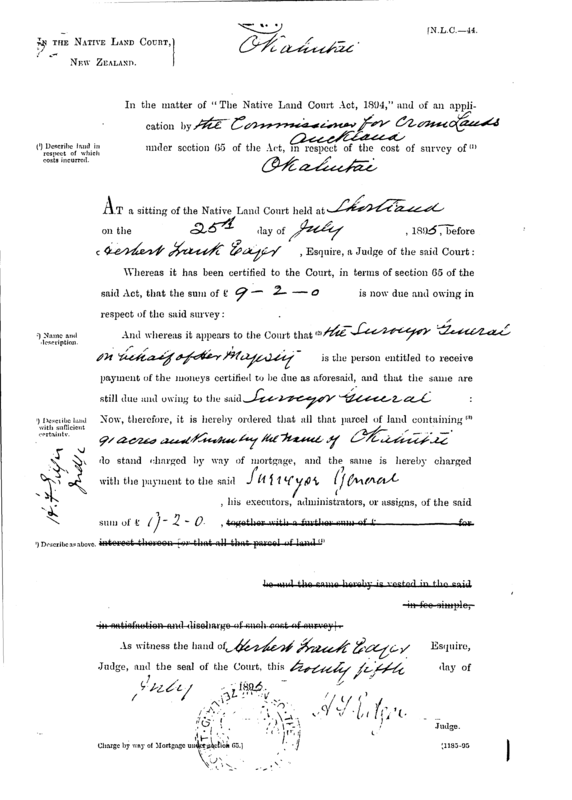 [N.L.C.—44.
Okahutai
IN THE NATIVE LAND COURT,
NEW ZEALAND.
In the matter of "The Native Land Court Act, 1894," and of an appli-
cation by the Commissioner for Crown Lands
Auckland
(1) Describe land in
respect of which
costs incurred.
under section 65 of the Act, in respect of the cost of survey of (1)
Okahutai
AT a sitting of the Native Land Court held at Shortland
on the 25th day of July , 1895, before
Herbert Frank Edger , Esquire, a Judge of the said Court:
Whereas it has been certified to the Court, in terms of section 65 of the
said Act, that the sum of £ 9 — 2 — 0 is now due and owing in
respect of the said survey:
(2) Name and
description.
And whereas it appears to the Court that (2) the Surveyor General
on behalf of Her Majesty is the person entitled to receive
payment of the moneys certified to be due as aforesaid, and that the same are
still due and owing to the said Surveyor General :
(3) Describe land
with sufficient
certainty.
Now, therefore, it is hereby ordered that all that parcel of land containing (3)
91 acres and known by the name of Okahutai
do stand charged by way of mortgage, and the same is hereby charged
with the payment to the said Surveyor General
H. F. Edger
Judge
, his executors, administrators, or assigns, of the said
sum of £ 9 - 2 - 0. , together with a further sum of £ for
(4) Describe as above. interest thereon [or that all that parcel of land (4)
be and the same hereby is vested in the said
in fee-simple,
in satisfaction and discharge of such cost of survey].
As witness the hand of Herbert Frank Edger Esquire,
Judge, and the seal of the Court, this twenty fifth day of
July 1895.
H F Edger
Judge.
Charge by way of Mortgage under section 65.]
[1185-95